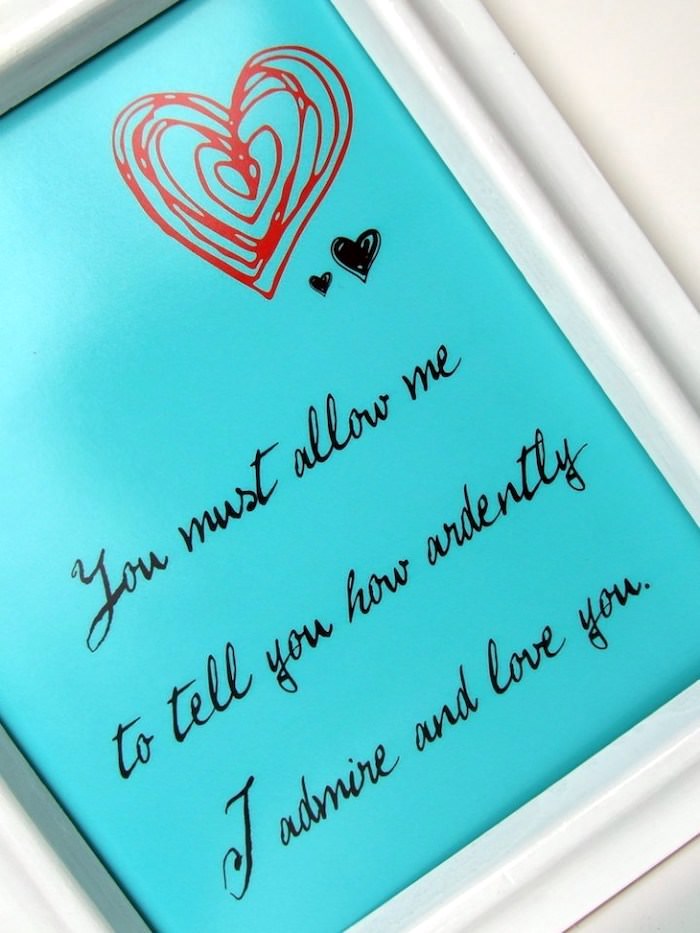 You must allow me
to tell you how ardently
I admire and love you.